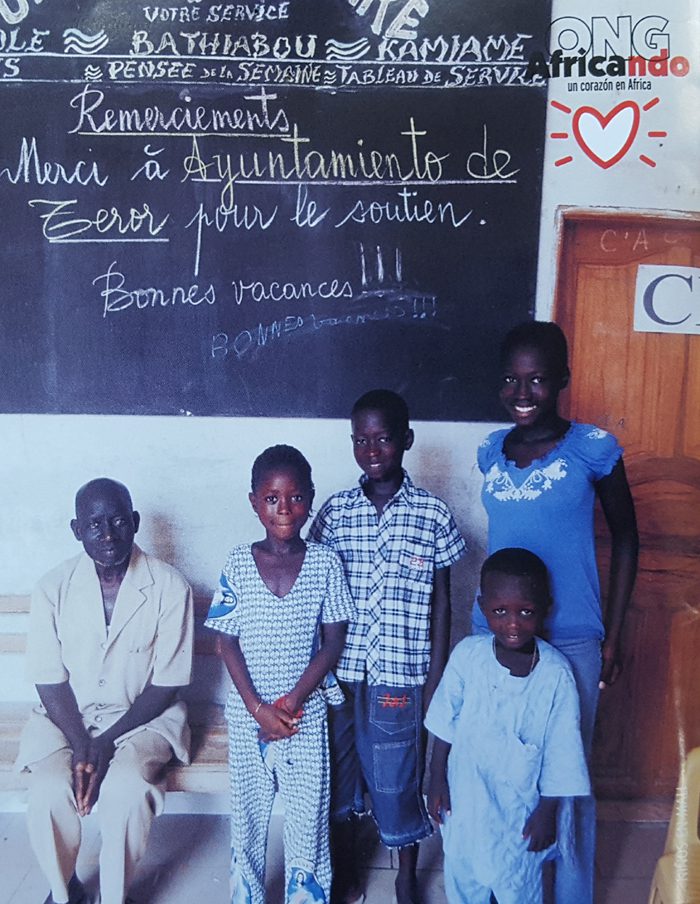 VOTRE SERVICE
BATHIABOU ≈ KAMIAME
≈ PENSEE DE LA SEMAINE ≈ TABLEAU DE
Remerciements
Merci à Ayuntamiento de
Teror pour le soutien.
Bonnes vacances !!!
BONNES vacances !!!
ONG
Africando
un corazón en Africa
C'A
C